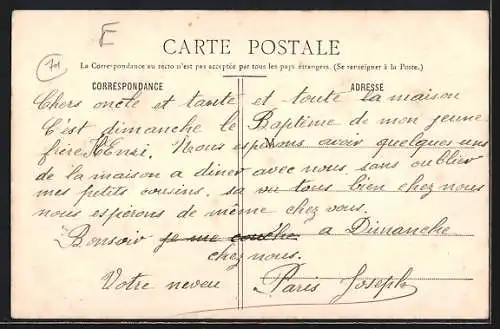 701 E
CARTE POSTALE
La Correspondance au recto n'est pas acceptée par tous les pays étrangers. (Se renseigner à la Poste.)
CORRESPONDANCE ADRESSE
Chers oncle et tante et toute la maison
C'est dimanche le Baptême de mon jeune
frère Henri. Nous espérons avoir quelques uns
de la maison a diner avec nous sans oublier
mes petits cousins. sa va tous bien chez nous
nous esperons de même chez vous.
Bonsoir je me couche a Dimanche
chez nous.
Votre neveu Paris Joseph